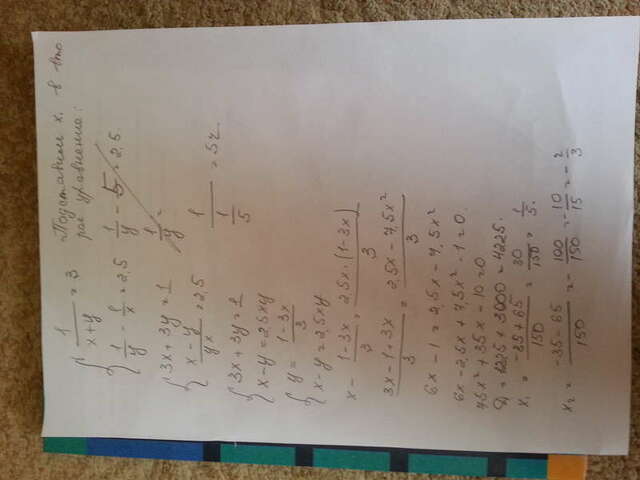 { 1/(x+y) = 3
1/y - 1/x = 2,5
{ 3x + 3y = 1
(x-y)/yx = 2,5
{ 3x + 3y = 1
x - y = 2,5xy
{ y = (1-3x)/3
x - y = 2,5xy
x - (1-3x)/3 = 2,5x·(1-3x)/3
(3x-1-3x)/3 = (2,5x - 7,5x²)/3
6x - 1 = 2,5x - 7,5x²
6x - 2,5x + 7,5x² - 1 = 0
75x² + 35x - 10 = 0
D = 1225 + 3000 = 4225
x₁ = (-35+65)/150 = 30/150 = 1/5.
x₂ = (-35-65)/150 = -100/150 = -10/15 = -2/3
Подставим x₁ в вто
рое уравнение:
1/y - 5 = 2,5
1/y
1/(1/5) = 5